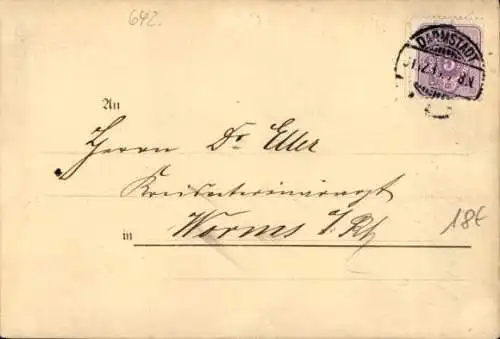 642.
DARMSTADT
5
An
Herrn Dr Eller
Kreisveterinärarzt
in Worms a/Rh
18€